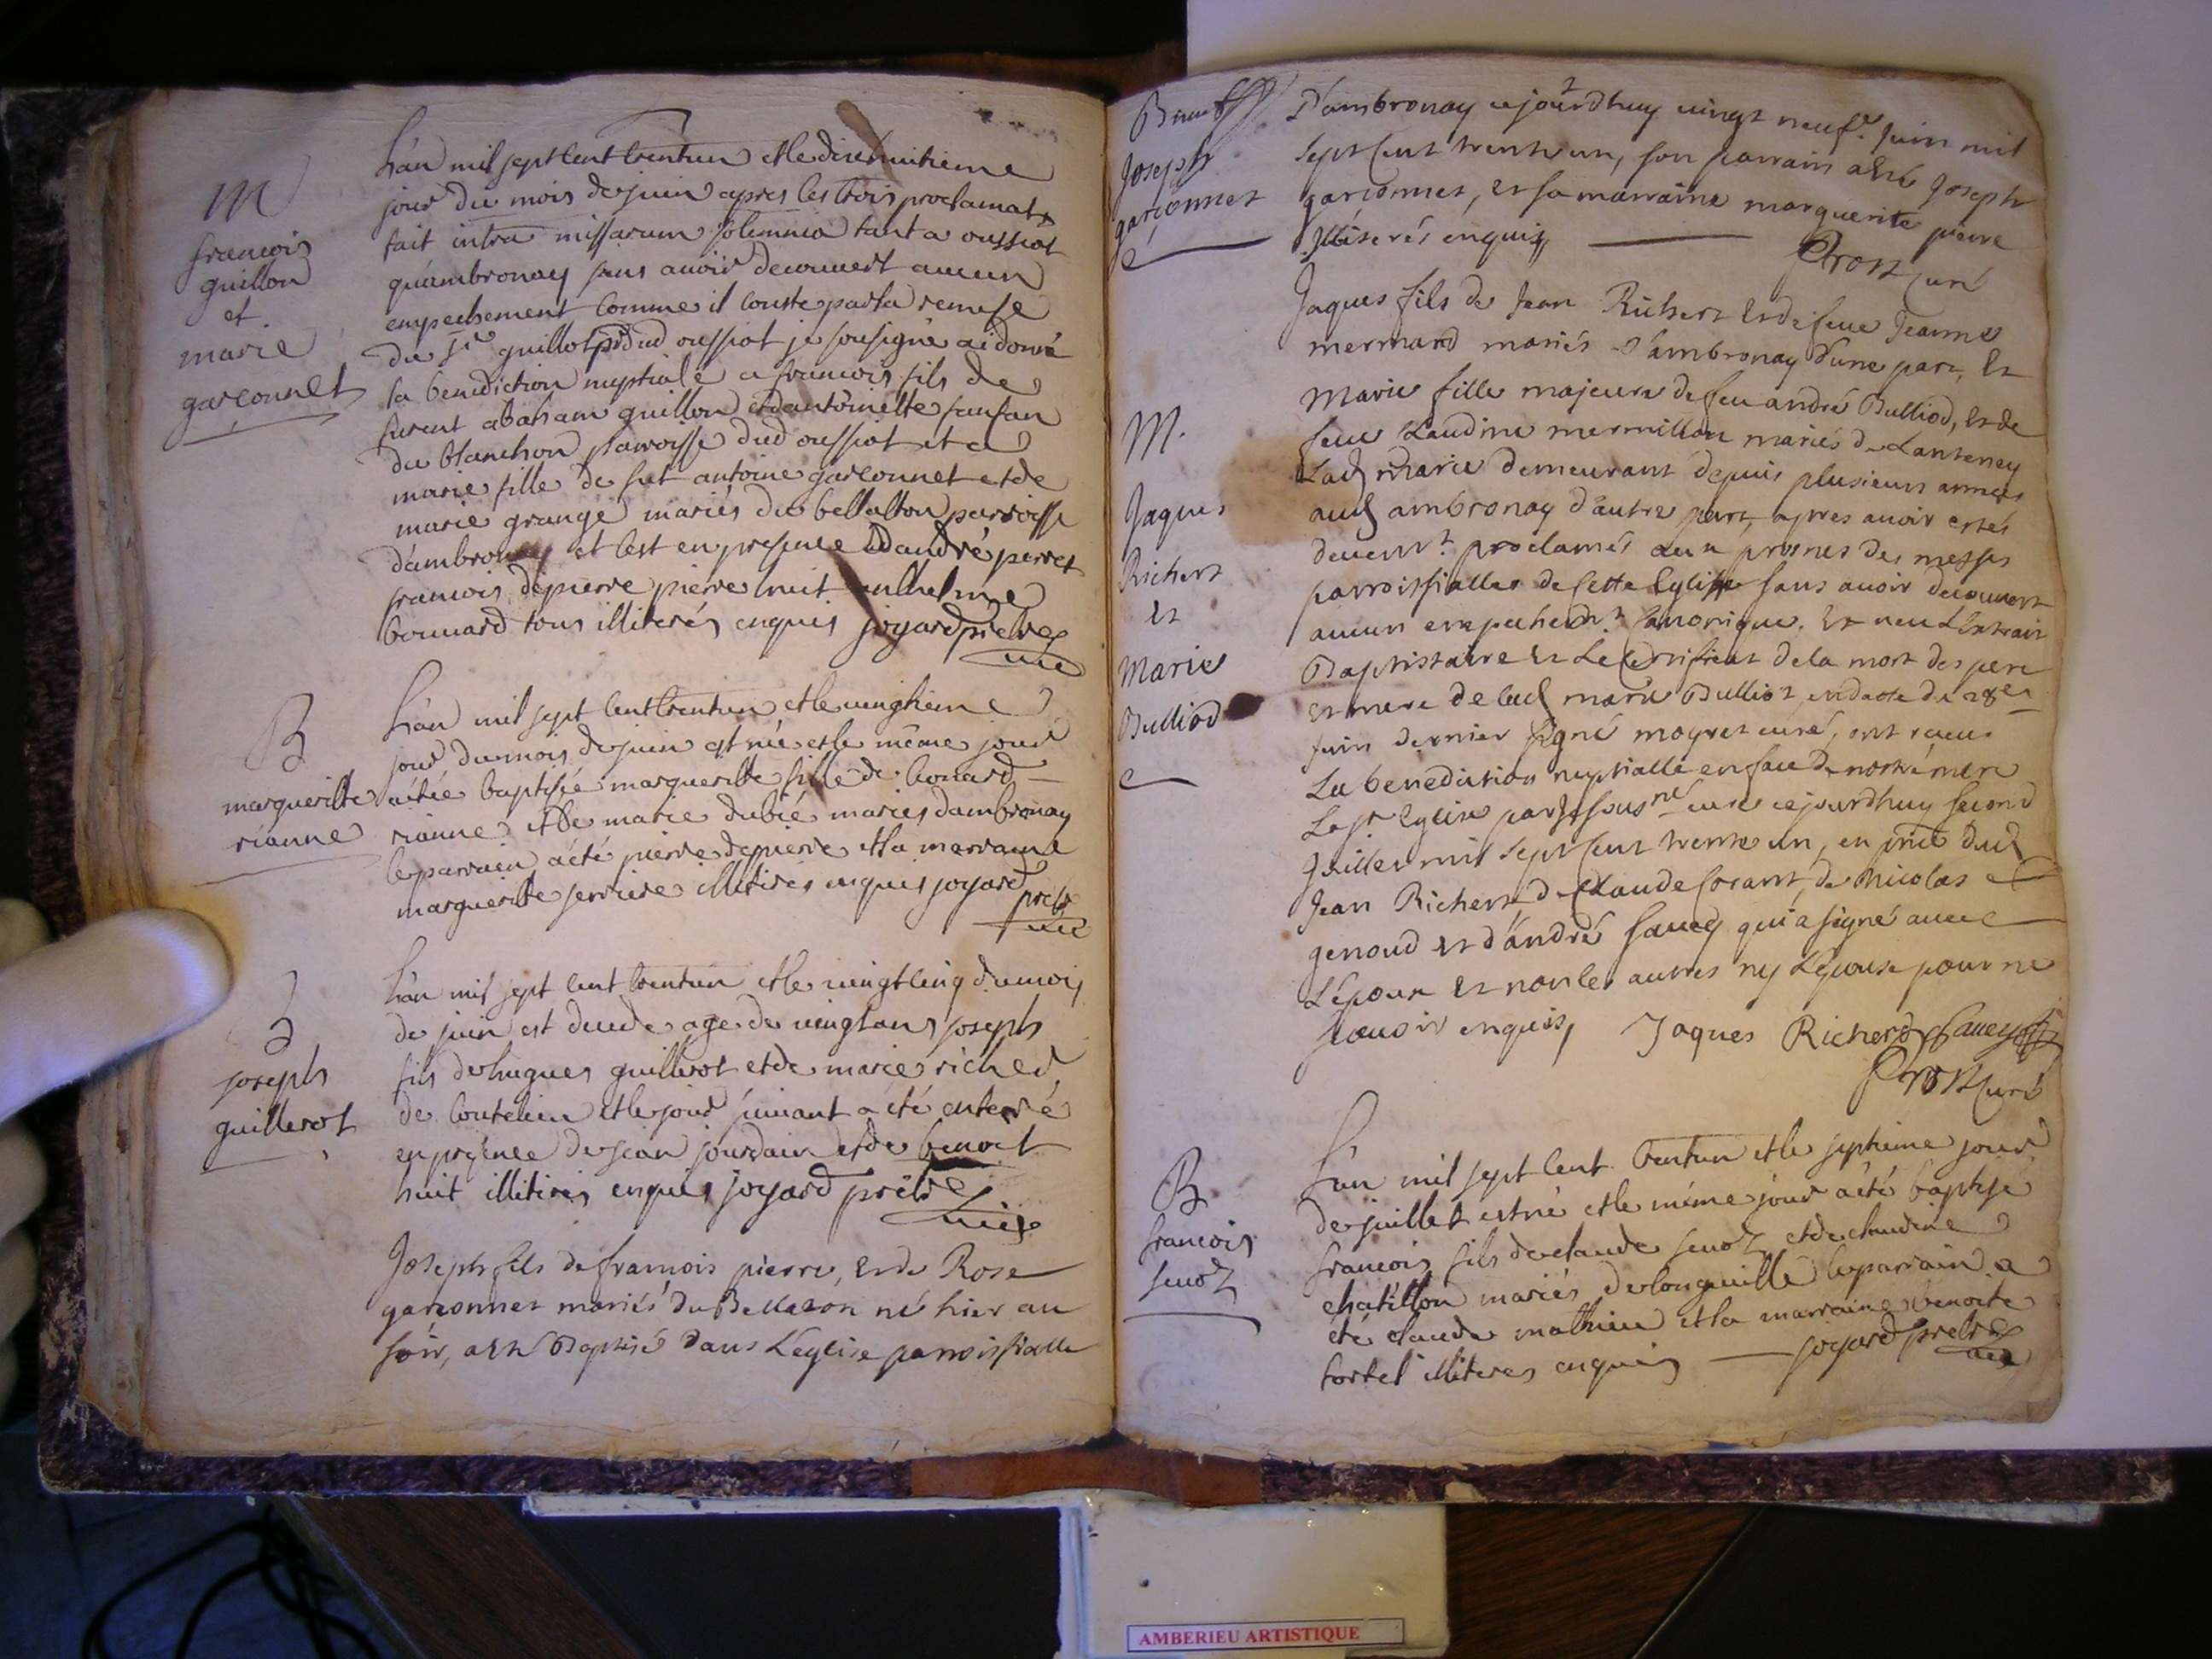 M
francois
guillon
et
marie
garconnet
Lân mil sept cent trentun et le dixhuitieme
jour du mois de juin apres les trois proclamat
fait intra missarum solemnia tant a oussiat
qu'ambronay sans avoir decouvert aucun
empechement comme il conste par la remise
du sr guillot dud oussiat je sousigné ai donné
la benediction nuptiale a francois fils de
furent abraham guillon et dantoinette fanfan
du blanchon parroisse dud oussiat et a
marie fille de fut antoine garconnet et de
marie grange mariés du bellatton parroisse
d'ambronay et c'est en presence d'andré perret
francois depierre pierre anthelme
bouvard tous illiterés enquis joyard prêtre
vic
B
margueritte
rianne
Lân mil sept cent trentun et le vingtieme
jour du mois de juin est née et le même jour
a étée baptisée marguerite fille de
rianne et de marie dubié mariés dambronay
le parrain a été pierre depierre et la marraine
marguerite illiterés enquis joyard
pretre
vic
joseph
guillerot
Lân mil sept cent trentun et le vingt cinq du mois
de juin est decede age de vingt ans joseph
fils de hugues guillerot et de marie richerd
de coutelieu et le jour suivant a été enterré
en presence de jean jourdain et de benoit
huit illiterés enquis joyard prêtre
vic
Joseph fils de francois pierre, et de Rose
garconnet mariés du Bellaton né hier au
soir, a eté Baptisé dans L'eglise parroissialle
Joseph
garconnet
D'ambronay cejourdhuy vingt neufe Juin mil
sept cent trente un, son parrain a eté Joseph
garconnet, et sa marraine marguerite pierre
illiterés enquis
Prost curé
M.
Jaques
Richert
et
Marie
Bulliod
Jaques fils de Jean Richert et de feue Jeanne
mermand mariés d'ambronay d'une part, et
Marie fille majeure de feu andré Bulliod, et de
feue Claudine mermillon mariés de Lantenay
Lad marie demeurant depuis plusieurs années
aud ambronay d'autre part, apres avoir estés
deuemt proclamés aux prosnes des messes
parroissialles de cette Eglise sans avoir decouvert
aucun empechemt canonique. Et veu L'extrait
Baptistaire et Le certificat de la mort des pere
et mere de lad marie Bulliod en datte du 28e
juin dernier signé moyret curé, ont receu
La benediction nuptialle en face de nostre mere
Le ste Eglise par je soussné curé cejourdhuy second
Juillet mil sept cent trente un, en pnce dud
Jean Richert de Claude Corant, de Nicolas
genoud et d'andré Saucy qui a signé avec
L'epoux et non les autres ny L'epouse pour ne
scavoir enquis, Jaques Richerd Saucy
Prost curé
B
francois
senoz
Lân mil sept cent trentun et le septieme jour
de juillet est né et le même jour a été baptisé
francois fils de claude senoz et de claudine
chatillon mariés de longeville le parrain a
été claude mathieu et la marraine benoite
tortel illiteres enquis joyard pretre
vic
AMBERIEU ARTISTIQUE